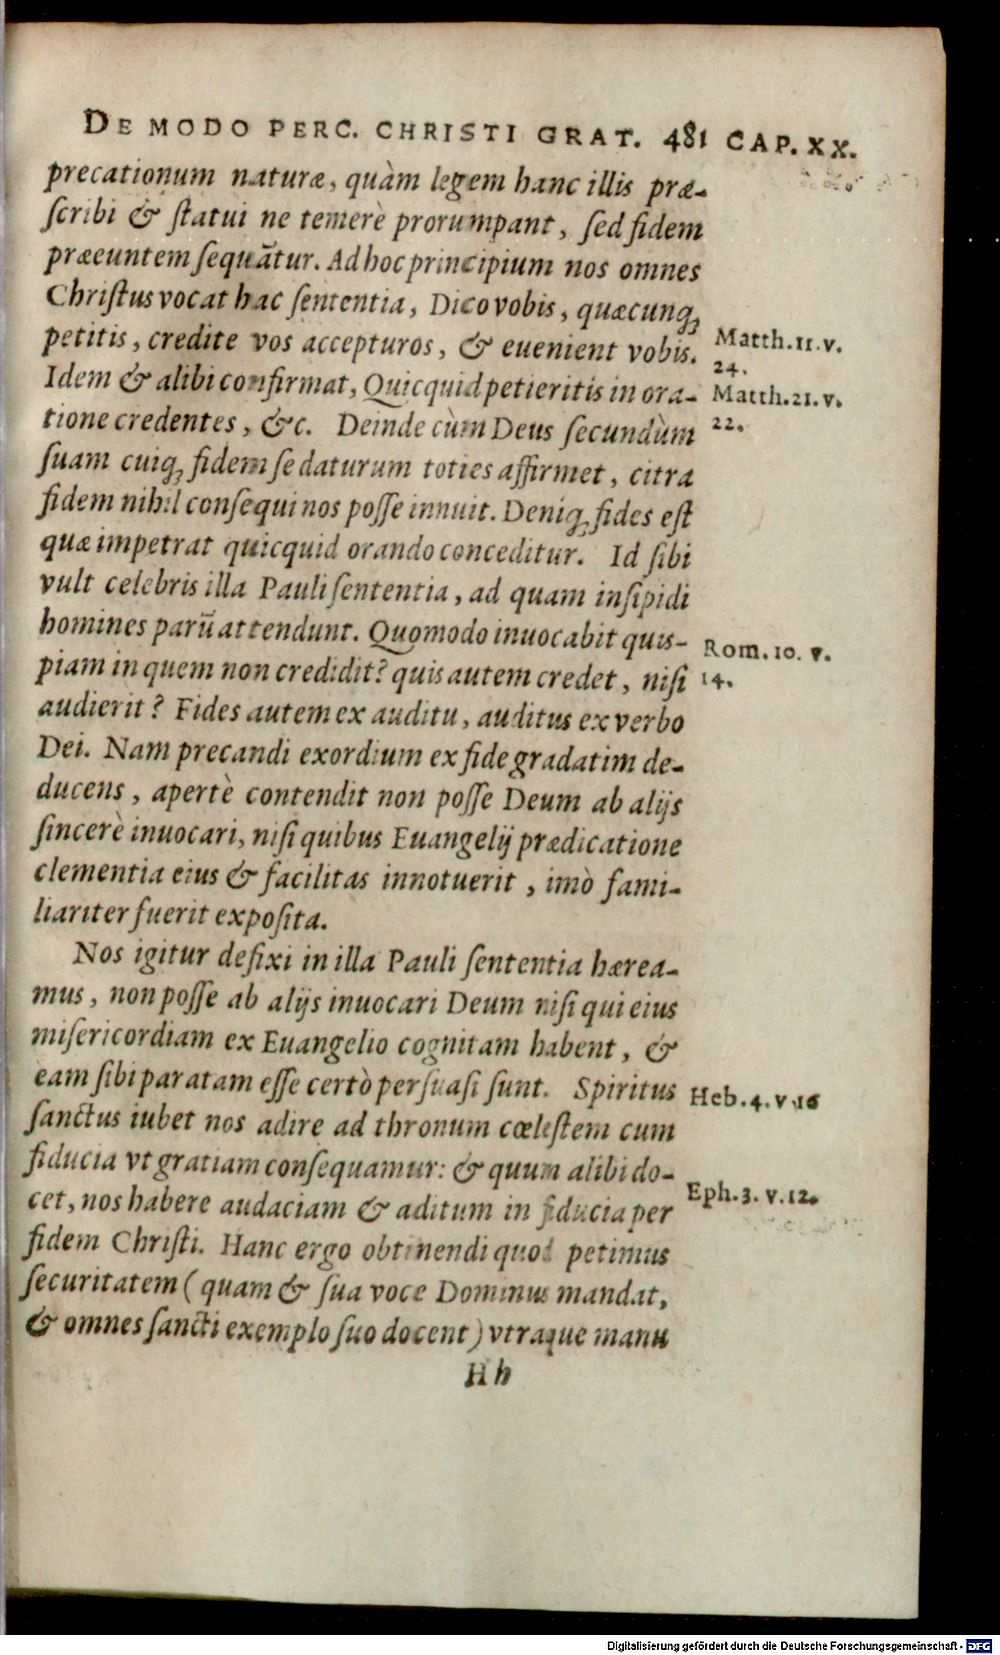 DE MODO PERC. CHRISTI GRAT. 481 CAP. XX.
precationum naturæ, quàm legem hanc illis præ-
ſcribi & ſtatui ne temerè prorumpant, ſed fidem
præeuntem ſequãtur. Ad hoc principium nos omnes
Chriſtus vocat hac ſententia, Dico vobis, quæcunq́;
petitis, credite vos accepturos, & euenient vobis.
Matth. 11. v.
24.
Idem & alibi confirmat, Quicquid petieritis in ora-
Matth. 21. v.
22.
tione credentes, &c. Deinde cùm Deus ſecundùm
ſuam cuiq; fidem ſe daturum toties affirmet, citra
fidem nihil conſequi nos poſſe innuit. Deniq; fides eſt
quæ impetrat quicquid orando conceditur. Id ſibi
vult celebris illa Pauli ſententia, ad quam inſipidi
homines parũ attendunt. Quomodo inuocabit quiſ-
Rom. 10. v.
14.
piam in quem non credidit? quis autem credet, niſi
audierit? Fides autem ex auditu, auditus ex verbo
Dei. Nam precandi exordium ex fide gradatim de-
ducens, apertè contendit non poſſe Deum ab alijs
ſincerè inuocari, niſi quibus Euangelij prædicatione
clementia eius & facilitas innotuerit, imò fami-
liariter fuerit expoſita.
Nos igitur defixi in illa Pauli ſententia hærea-
mus, non poſſe ab alijs inuocari Deum niſi qui eius
miſericordiam ex Euangelio cognitam habent, &
eam ſibi paratam eſſe certò perſuaſi ſunt. Spiritus
Heb. 4. v. 16
ſanctus iubet nos adire ad thronum cœleſtem cum
fiducia vt gratiam conſequamur: & quum alibi do-
Eph. 3. v. 12.
cet, nos habere audaciam & aditum in fiducia per
fidem Chriſti. Hanc ergo obtinendi quod petimus
ſecuritatem (quam & ſua voce Dominus mandat,
& omnes ſancti exemplo ſuo docent) vtraque manu
Hh
Digitalisierung gefördert durch die Deutsche Forschungsgemeinschaft - DFG